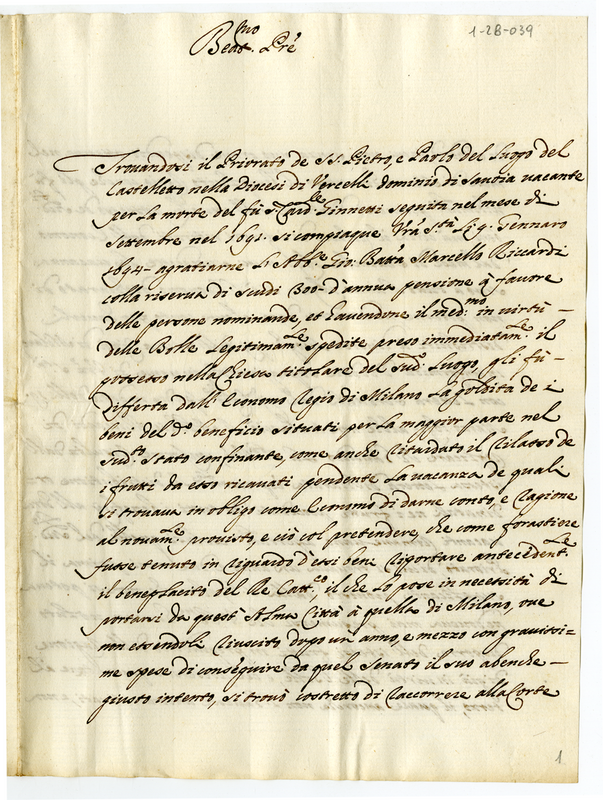 1-2B-039
Beat.mo Pre
Trovandosi il Priorato de SS. Pietro, e Paolo del Luogo del
Castelletto nella Diocesi di Vercelli dominio di Savoia vacante
per la morte del fù Card.le Ginnetti seguita nel mese di
Settembre nel 1691. si compiaque Vrā S.tà li 9. Gennaro
1694– agratiarne l'Abb.e Gio: Batta Marcello Riccardi
colla riserva di Scudi 300– d'annua pensione à favore
delle persone nominande, et havendone il med.mo in virtù –
delle Bolle Legitimam.le spedite preso immediatam.le il
possesso nella Chiesa titolare del sud.o Luogo, gli fù –
differta dall'Economo Regio di Milano la goldita de i
beni del d.o beneficio situati per la maggior parte nel
sud.to Stato confinante, come anche ritardato il rilasso de
i frutti da esso ricavati pendente la vacanza de quali
si trovava in obligo come Economo di darne conto, e ragione
al novam.le provisto, e ciò col pretendere, che come forastiere
fusse tenuto in riguardo d'essi beni riportare antecedent.le
il beneplacito del Re Catt.co, il che lo pose in necessità di
portarsi da quest'Alma Città à quella di Milano, ove
non essendoli riuscito dopo un anno, e mezzo con gravissi=
me spese di conseguire da quel Senato il suo abenche –
giusto intento, si trovò costretto di raccorrere alla Corte
1